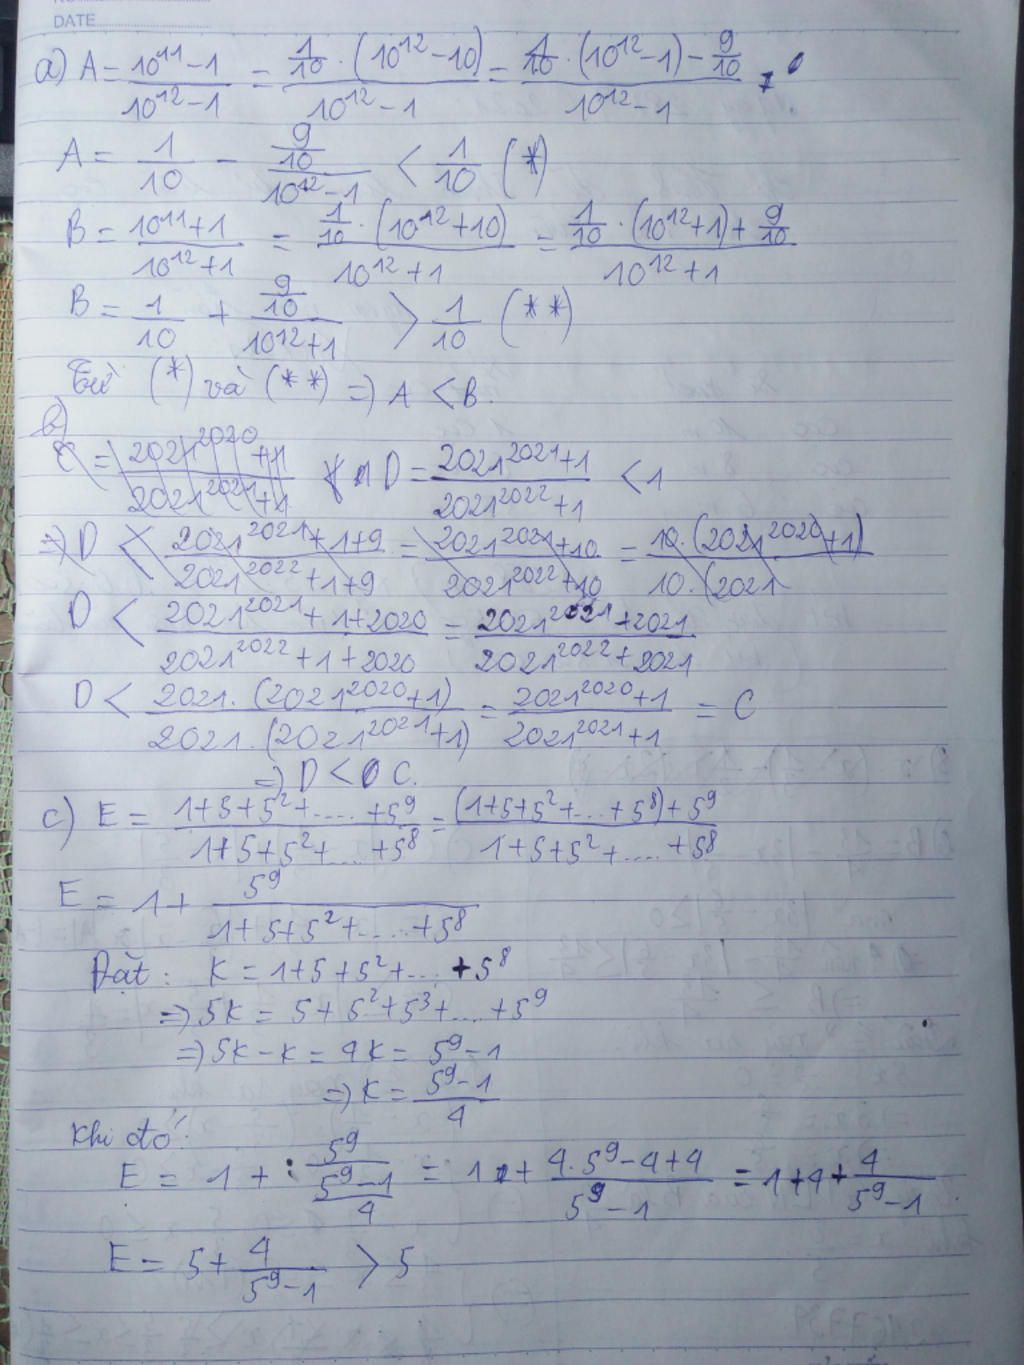 DATE
a) A = (10¹¹ - 1)/(10¹² - 1) = (1/10 . (10¹² - 10))/(10¹² - 1) = (1/10 . (10¹² - 1) - 9/10)/(10¹² - 1)
A = 1/10 - (9/10)/(10¹² - 1) < 1/10 (*)
B = (10¹¹ + 1)/(10¹² + 1) = (1/10 . (10¹² + 10))/(10¹² + 1) = (1/10 . (10¹² + 1) + 9/10)/(10¹² + 1)
B = 1/10 + (9/10)/(10¹² + 1) > 1/10 (**)
Từ (*) và (**) => A < B.
b)
C = (2021²⁰²⁰ + 1)/(2021²⁰²¹ + 1) D = (2021²⁰²¹ + 1)/(2021²⁰²² + 1) < 1
=> D < (2021²⁰²¹ + 1 + 9)/(2021²⁰²² + 1 + 9) = (2021²⁰²¹ + 10)/(2021²⁰²² + 10) = (10. (2021²⁰²⁰ + 1))/(10. (2021
D < (2021²⁰²¹ + 1 + 2020)/(2021²⁰²² + 1 + 2020) = (2021²⁰²¹ + 2021)/(2021²⁰²² + 2021)
D < (2021. (2021²⁰²⁰ + 1))/(2021. (2021²⁰²¹ + 1)) = (2021²⁰²⁰ + 1)/(2021²⁰²¹ + 1) = C
=> D < C.
c) E = (1 + 5 + 5² + ..... + 5⁹)/(1 + 5 + 5² + .... + 5⁸) = ((1 + 5 + 5² + ... + 5⁸) + 5⁹)/(1 + 5 + 5² + .... + 5⁸)
E = 1 + 5⁹/(1 + 5 + 5² + .... + 5⁸)
Đặt: K = 1 + 5 + 5² + .... + 5⁸
=> 5K = 5 + 5² + 5³ + .... + 5⁹
=> 5K - K = 4K = 5⁹ - 1
=> K = (5⁹ - 1)/4
Khi đó:
E = 1 + 5⁹/((5⁹ - 1)/4) = 1 + (4. 5⁹ - 4 + 4)/(5⁹ - 1) = 1 + 4 + 4/(5⁹ - 1)
E = 5 + 4/(5⁹ - 1) > 5